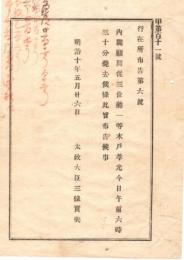 甲第百十一號
行在所布告第六號
內閣顧問從三位勲一等木戶孝允今日午前六時
三十分薨去候條此旨布告候事
明治十年五月廿六日
太政大臣三條實美